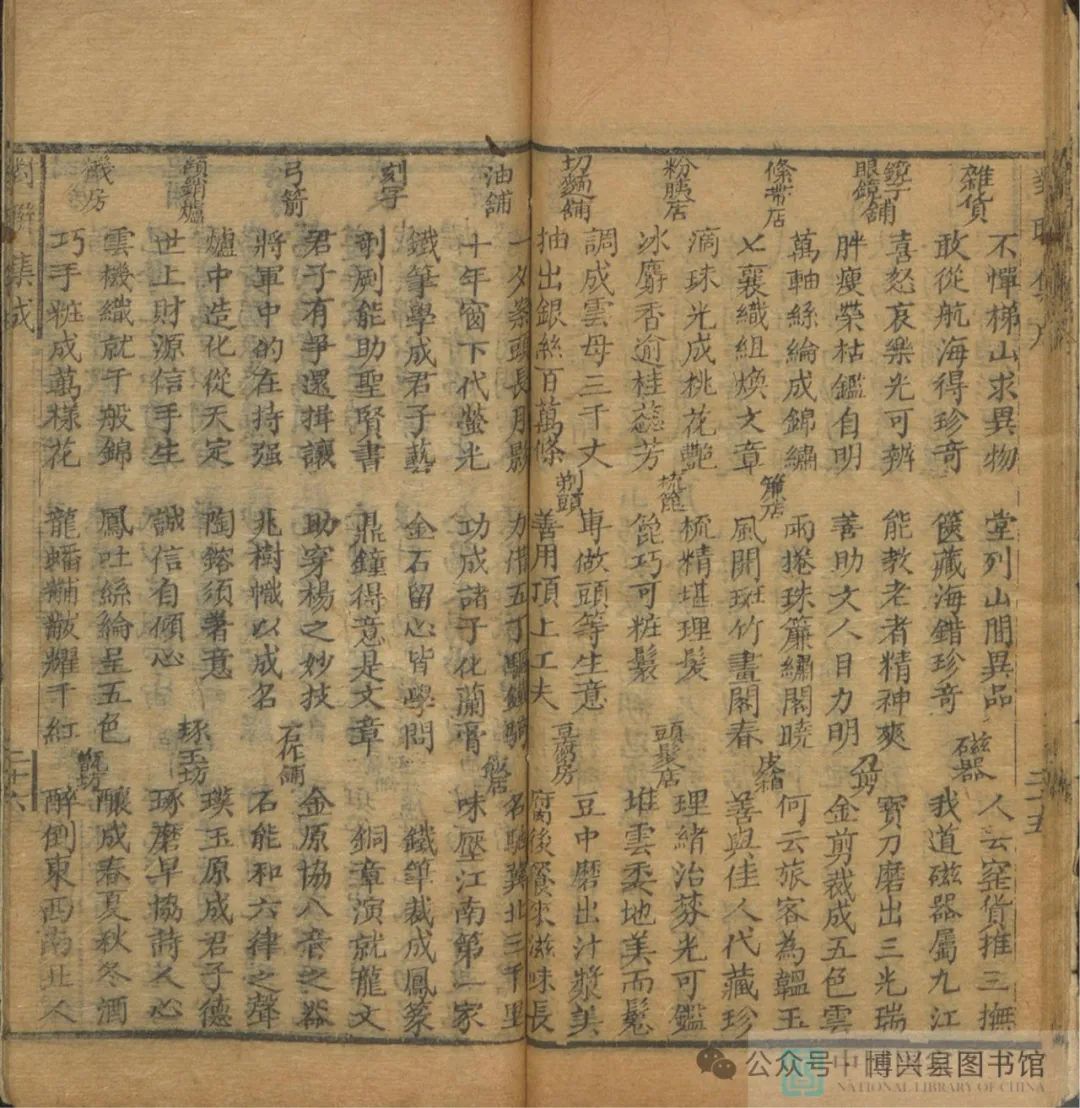 雜貨
不憚梯山求異物
敢從航海得珍奇
鏡子
眼鏡舖
喜怒哀樂光可辨
胖瘦榮枯鑑自明
絛帶店
萬軸絲綸成錦繡
七襄織組煥文章
粉胰店
滴珠光成桃花艷
冰麝香逾桂蕊芳
切麵舖
調成雲母三千丈
抽出銀絲百萬條
堂列山間異品
篋藏海錯珍奇
能教老者精神爽
善助文人目力明
簾店
雨捲珠簾繡閣曉
風開斑竹畫閣春
梳篦
梳精堪理髮
篦巧可粧鬟
剃頭
專做頭等生意
善用頂上工夫
磁器
人云窰貨推三撫
我道磁器屬九江
刀剪
寶刀磨出三光瑞
金剪裁成五色雲
皮箱
何云旅客為韞玉
善與佳人代藏珍
頭髮店
理緒治棼光可鑑
堆雲委地美而鬈
豆腐房
豆中磨出汁漿美
腐後餐來滋味長
二十五
油舖
一夕案頭長月影
十年窗下代螢光
刻字
鐵筆學成君子藝
剞劂能助聖賢書
弓箭
君子有爭還揖讓
將軍中的在持强
傾銷爐
爐中造化從天定
世上財源信手生
機房
雲機織就千般錦
巧手粧成萬樣花
力借五丁驅鐵
功成諸子化蘭膏
金石留心皆學問
鼎鐘得意是文章
助穿楊之妙技
兆樹幟以成名
陶鎔須著意
誠信自傾心
鳳吐絲綸呈五色
龍蟠黼黻耀千紅
飯店
名馳冀北三千里
味壓江南第一家
鐵筆裁成鳳篆
銅章演就龍文
石作舖
金原協八音之器
石能和六律之聲
琢玉坊
璞玉原成君子德
琢磨早協詩人心
坊
釀成春夏秋冬酒
醉倒東西南北人
對聯集成
二十六
公众号·博兴县图书馆
NATIONAL LIBRARY OF CHINA